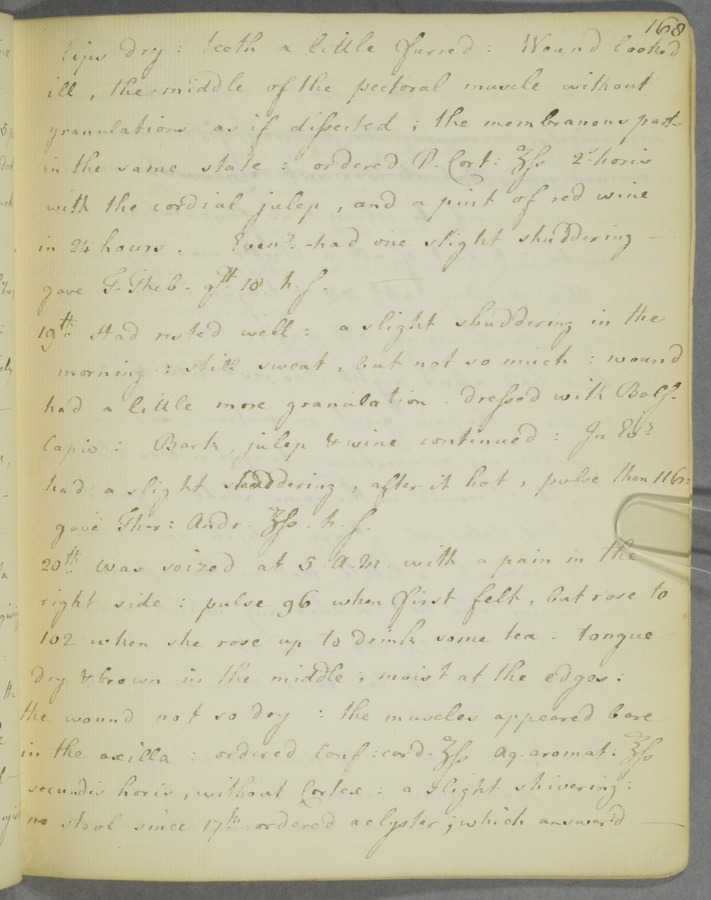 168
lips dry : teeth a little furred : Wound looked
ill, the middle of the pectoral muscle without
granulations as if dissected ; the membranous part
in the same state : ordered P. Cort: ʒſs 2.is horis
with the cordial julep, and a pint of red wine
in 24 hours. Even.g had one slight shuddering —
gave T. Theb. gtt 18 h. s.
19th Had rested well : a slight shuddering in the
morning : still sweat, but not so much : wound
had a little more granulation : dressed with Balſ.
Capiv : Bark, julep & wine continued : In Evg
had a slight shuddering, after it hot, pulse then 116:
gave Ther: Andr. ʒſs. h. s.
20th was seized at 5 A.M. with a pain in the
right side : pulse 96 when first felt, but rose to
102 when she rose up to drink some tea : tongue
dry & brown in the middle ; moist at the edges :
the wound not so dry : the muscles appeared bare
in the axilla : ordered Conf: card. ʒſs aq. aromat. ℥ſs
secundis horis, without Cortex : a slight shivering :
no stool since 17th ordered a clyster ; which answer'd —